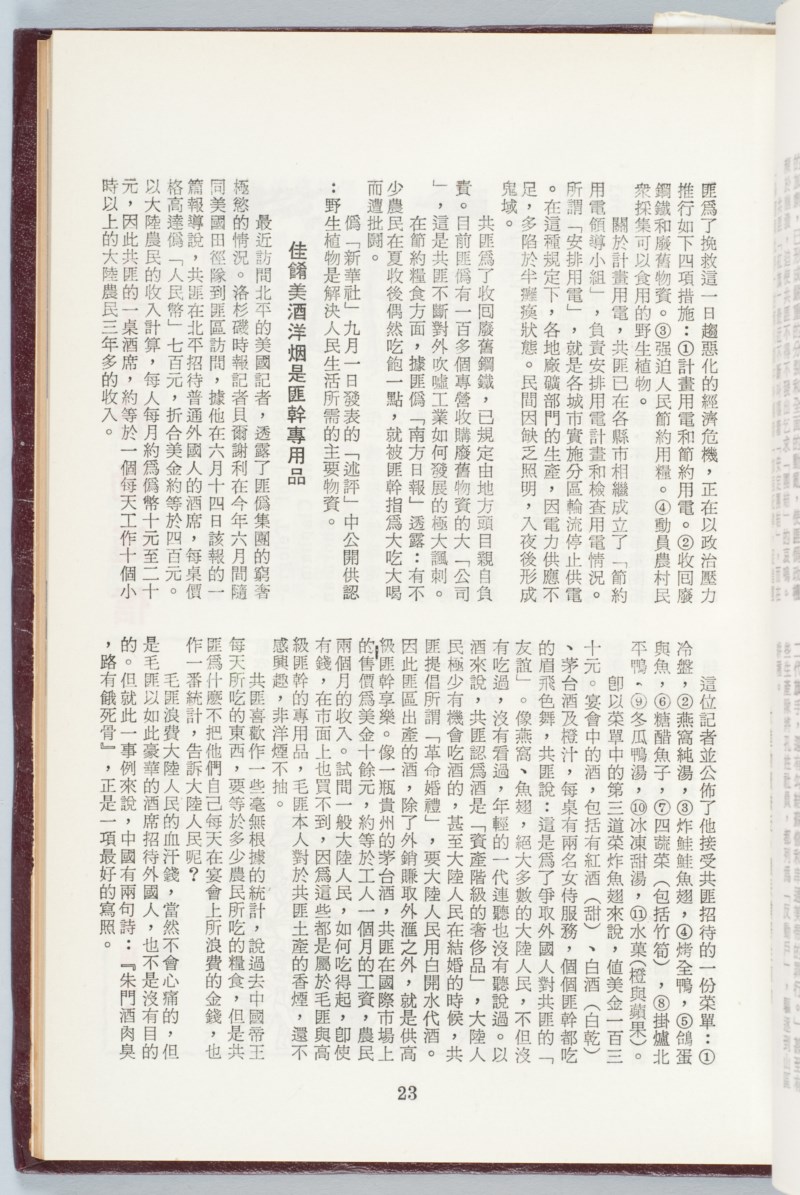 匪爲了挽救這一日趨惡化的經濟危機，正在以政治壓力
推行如下四項措施：①計畫用電和節約用電。②收回廢
鋼鐵和廢舊物資。③强迫人民節約用糧。④動員農村民
衆採集可以食用的野生植物。
關於計畫用電，共匪已在各縣市相繼成立了「節約
用電領導小組」，負責安排用電計畫和檢查用電情況。
所謂「安排用電」，就是各城市實施分區輪流停止供電
。在這種規定下，各地廠礦部門的生產，因電力供應不
足，多陷於半癱瘓狀態。民間因缺乏照明，入夜後形成
鬼域。
共匪爲了收回廢舊鋼鐵，已規定由地方頭目親自負
責。目前匪僞有一百多個專營收購廢舊物資的大「公司
」，這是共匪不斷對外吹噓工業如何發展的極大諷刺。
在節約糧食方面，據匪僞「南方日報」透露：有不
少農民在夏收後偶然吃飽一點，就被匪幹指爲大吃大喝
而遭批鬪。
僞「新華社」九月一日發表的「述評」中公開供認
：野生植物是解決人民生活所需的主要物資。
佳餚美酒洋烟是匪幹專用品
最近訪問北平的美國記者，透露了匪僞集團的窮奢
極慾的情況。洛杉磯時報記者貝爾謝利在今年六月間隨
同美國田徑隊到匪區訪問，據他在六月十四日該報的一
篇報導說，共匪在北平招待普通外國人的酒席，每桌價
格高達僞「人民幣」七百元，折合美金約等於四百元。
以大陸農民的收入計算，每人每月約爲僞幣十元至二十
元，因此共匪的一桌酒席，約等於一個每天工作十個小
時以上的大陸農民三年多的收入。
這位記者並公佈了他接受共匪招待的一份菜單：①
冷盤，②燕窩純湯，③炸鮭鮭魚翅，④烤全鴨，⑤鴿蛋
與魚，⑥糖醋魚子，⑦四蔬菜（包括竹筍），⑧掛爐北
平鴨，⑨冬瓜鴨湯，⑩冰凍甜湯，⑪水菓（橙與蘋果）。
卽以菜單中的第三道菜炸魚翅來說，値美金一百三
十元。宴會中的酒，包括有紅酒（甜）、白酒（白乾）
、茅台酒及橙汁，每桌有兩名女侍服務，個個匪幹都吃
的眉飛色舞，共匪說：這是爲了爭取外國人對共匪的「
友誼」。像燕窩、魚翅，絕大多數的大陸人民，不但沒
有吃過，沒有看過，年輕的一代連聽也沒有聽說過。以
酒來說，共匪認爲酒是「資產階級的奢侈品」，大陸人
民極少有機會吃酒的，甚至大陸人民在結婚的時候，共
匪提倡所謂「革命婚禮」，要大陸人民用白開水代酒。
因此匪區出產的酒，除了外銷賺取外滙之外，就是供高
級匪幹享樂。像一瓶貴州的茅台酒，共匪在國際市場上
的售價爲美金十餘元，約等於工人一個月的工資，農民
兩個月的收入。試問一般大陸人民，如何吃得起，卽使
有錢，在市面上也買不到，因爲這些都是屬於毛匪與高
級匪幹的專用品，毛匪本人對於共匪土產的香煙，還不
感興趣，非洋煙不抽。
共匪喜歡作一些毫無根據的統計，說過去中國帝王
每天所吃的東西，要等於多少農民所吃的糧食，但是共
匪爲什麼不把他們自己每天在宴會上所浪費的金錢，也
作一番統計，告訴大陸人民呢？
毛匪浪費大陸人民的血汗錢，當然不會心痛的，但
是毛匪以如此豪華的酒席招待外國人，也不是沒有目的
的。但就此一事例來說，中國有兩句詩：『朱門酒肉臭
，路有餓死骨』，正是一項最好的寫照。
23